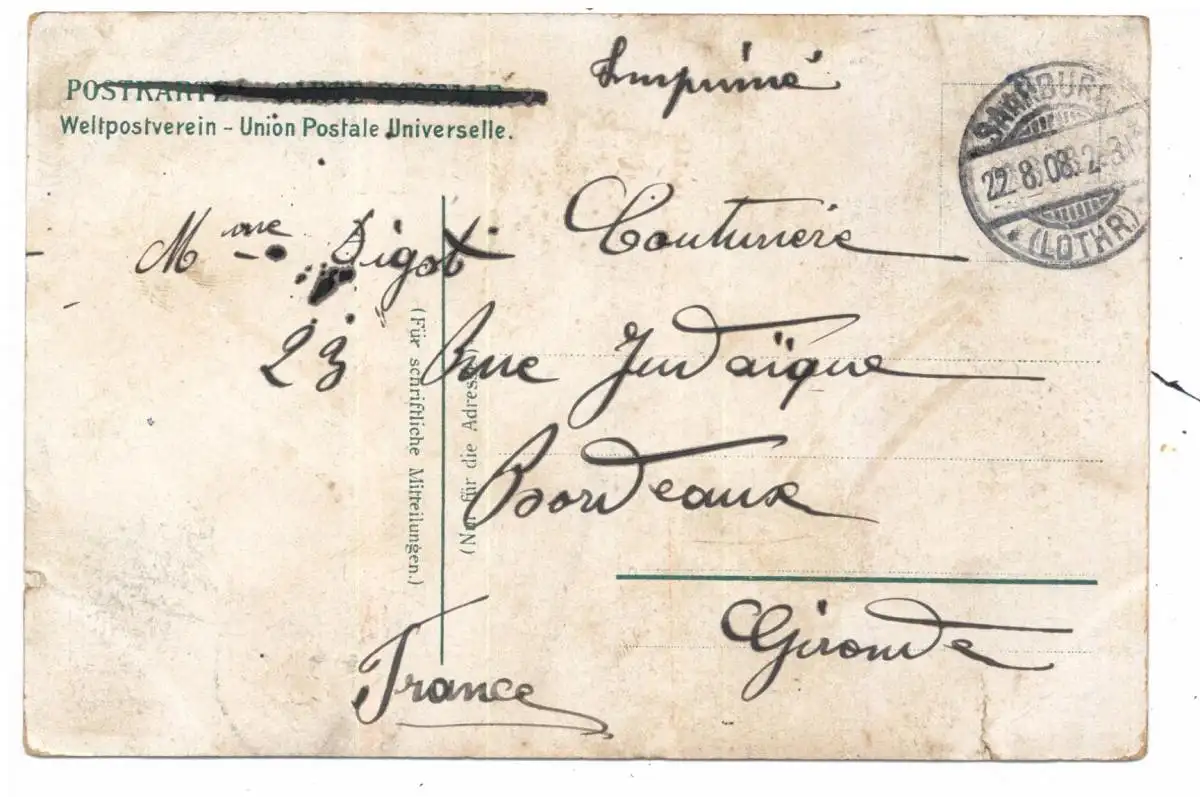 Imprimé
POSTKARTE - CARTE POSTALE
Weltpostverein - Union Postale Universelle.
SAARBURG
22.8.08. 2-3 N
* (LOTHR)
Mme Digot Couturière
23 Rue Judaïque
Bordeaux
Gironde
France
(Für schriftliche Mitteilungen.)
(Nur für die Adresse.)